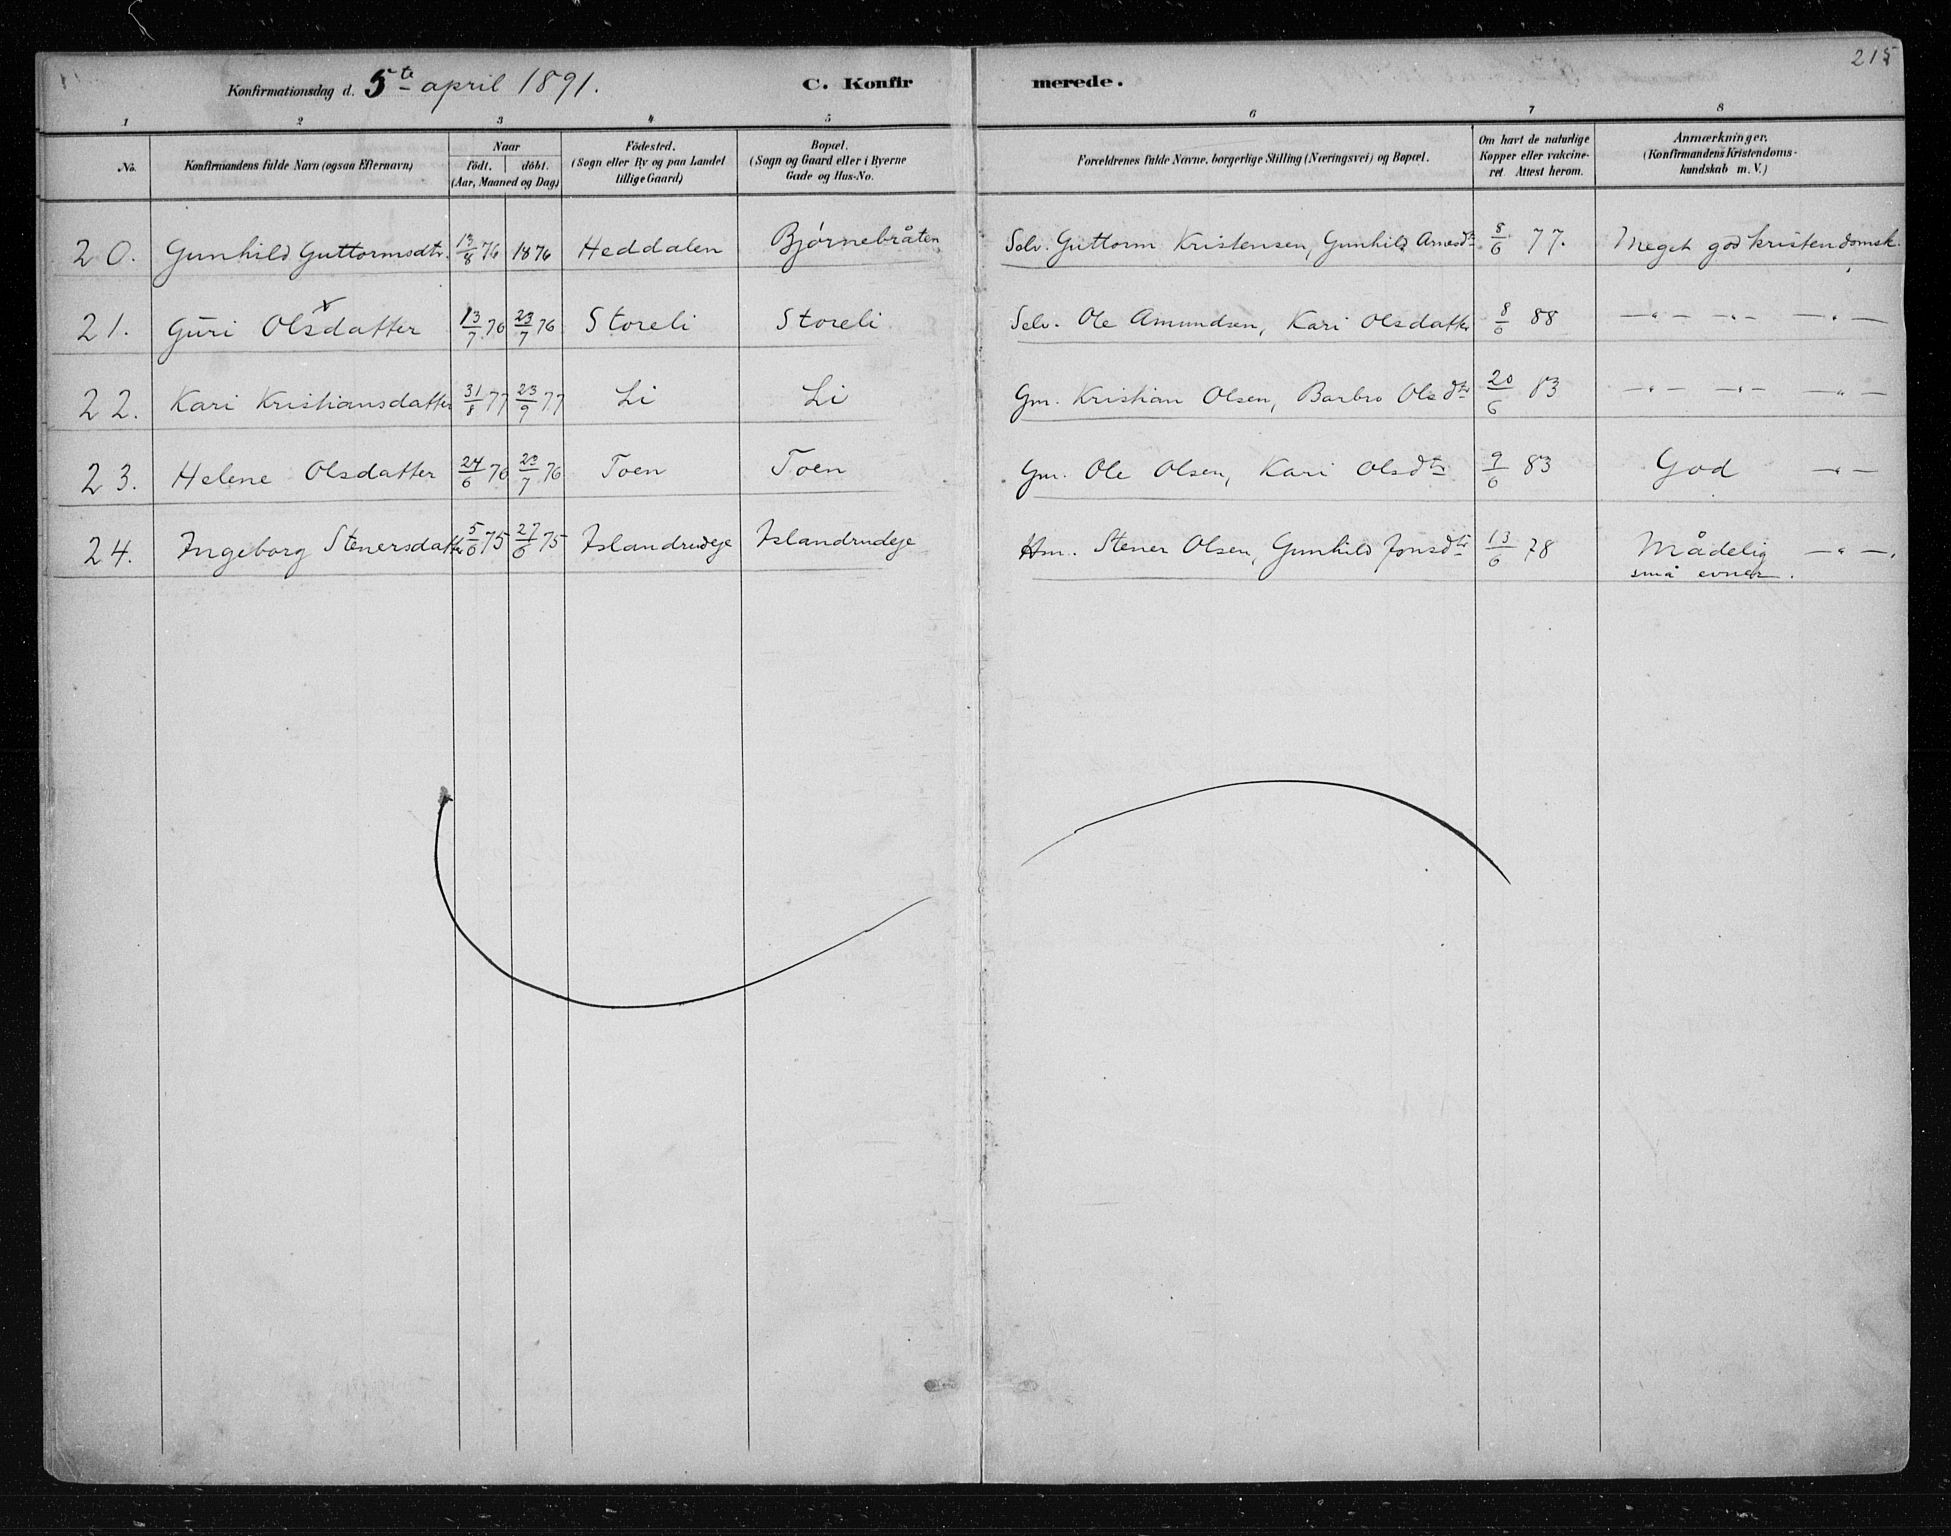 215
Konfirmationsdag d. 5te april 1891. C. Konfirmerede.
1 2 3 4 5 6 7 8
No. Konfirmandens fulde Navn (ogsaa Efternavn) Naar födt. döbt. (Aar, Maaned og Dag) Födested. (Sogn eller By og paa Landet tillige Gaard) Bopæl. (Sogn og Gaard eller i Byerne Gade og Hus-No. Forældrenes fulde Navne, borgerlige Stilling (Næringsvei) og Bopæl. Om havt de naturlige Kopper eller vakcineret Attest herom. Anmærkninger. (Konfirmandens Kristendomskundskab m. V.)
20. Gunhild Guttormsdtr. 13/8 76 1876 Heddalen Bjørnebråten Selv. Guttorm Kristensen, Gunhild Arnesdtr 8/6 77. Meget god kristendomsk.
21. Guri Olsdatter 13/7 76 23/7 76 Storeli Storeli Selv. Ole Amundsen, Kari Olsdatter 8/6 88 —"— —"— —"—
22. Kari Kristiansdatter 31/8 77 23/9 77 Li Li Gm. Kristian Olsen, Barbro Olsdtr 20/6 83 —"— —"— —"—
23. Helene Olsdatter 24/6 76 23/7 76 Toen Toen Gm. Ole Olsen, Kari Olsdtr 9/6 83 God —"—
24. Ingeborg Stenersdatter 5/6 75 27/6 75 Islandrudeje Islandrudeje Hm. Stener Olsen, Gunhild Jonsdtr 13/6 78 Mådelig —"—.
små evner.